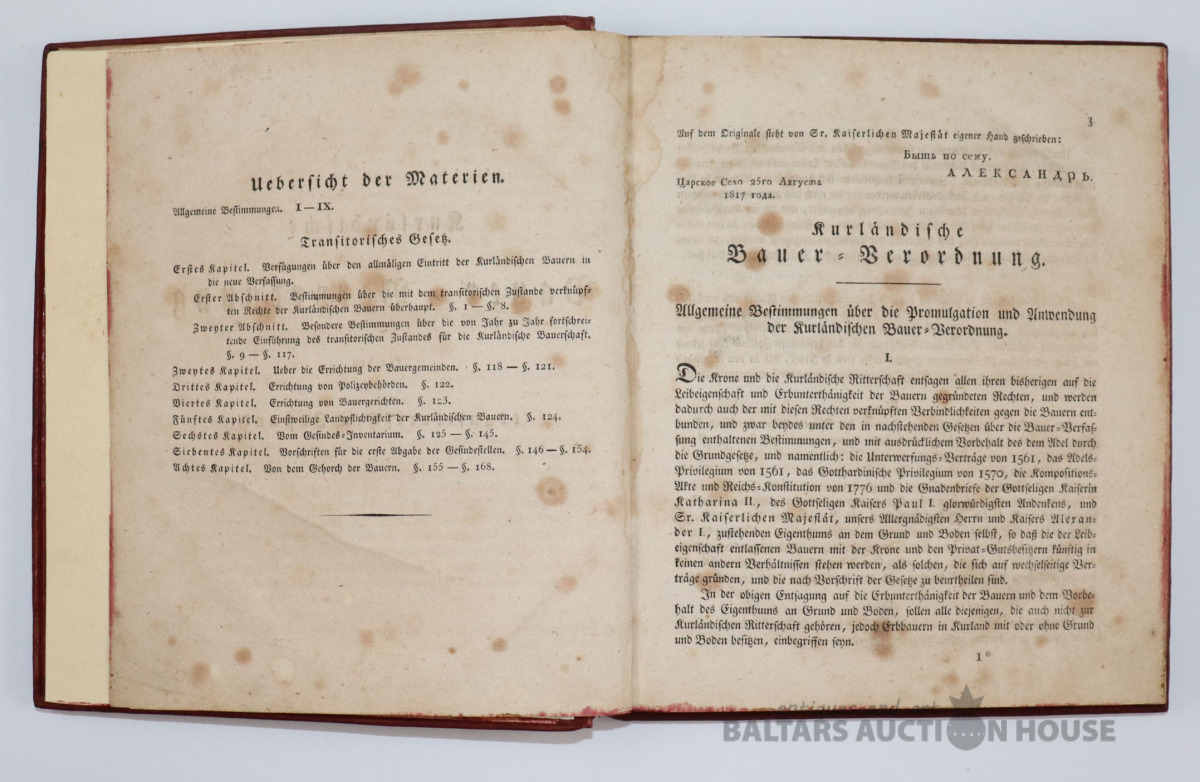 Uebersicht der Materien.
Allgemeine Bestimmungen. I — IX.
Transitorisches Gesetz.
Erstes Kapitel. Verfügungen über den allmäligen Eintritt der Kurländischen Bauern in
die neue Verfassung.
Erster Abschnitt. Bestimmungen über die mit dem transitorischen Zustande verknüpf-
ten Rechte der Kurländischen Bauern überhaupt. §. 1 — §. 8.
Zweyter Abschnitt. Besondere Bestimmungen über die von Jahr zu Jahr fortschrei-
tende Einführung des transitorischen Zustandes für die Kurländische Bauerschaft.
§. 9 — §. 117.
Zweytes Kapitel. Ueber die Errichtung der Bauergemeinden. §. 118 — §. 121.
Drittes Kapitel. Errichtung von Polizeybehörden. §. 122.
Viertes Kapitel. Errichtung von Bauergerichten. §. 123.
Fünftes Kapitel. Einstweilige Landpflichtigkeit der Kurländischen Bauern. §. 124.
Sechstes Kapitel. Vom Gesindes-Inventarium. §. 125 — §. 145.
Siebentes Kapitel. Vorschriften für die erste Abgabe der Gesindestellen. §. 146 — §. 154.
Achtes Kapitel. Von dem Gehorch der Bauern. §. 155 — §. 168.
3
Auf dem Originale steht von Sr. Kaiserlichen Majestät eigener Hand geschrieben:
Быть по сему.
АЛЕКСАНДРЬ.
Царское Село 25го Августа
1817 года.
Kurländische
Bauer-Verordnung.
Allgemeine Bestimmungen über die Promulgation und Anwendung
der Kurländischen Bauer-Verordnung.
I.
Die Krone und die Kurländische Ritterschaft entsagen allen ihren bisherigen auf die
Leibeigenschaft und Erbunterthänigkeit der Bauern gegründeten Rechten, und werden
dadurch auch der mit diesen Rechten verknüpften Verbindlichkeiten gegen die Bauern ent-
bunden, und zwar beydes unter den in nachstehenden Gesetzen über die Bauer-Verfas-
sung enthaltenen Bestimmungen, und mit ausdrücklichem Vorbehalt des dem Adel durch
die Grundgesetze, und namentlich: die Unterwerfungs-Verträge von 1561, das Adels-
Privilegium von 1561, das Gotthardinische Privilegium von 1570, die Kompositions-
Akte und Reichs-Konstitution von 1776 und die Gnadenbriefe der Gottseligen Kaiserin
Katharina II., des Gottseligen Kaisers Paul I. glorwürdigsten Andenkens, und
Sr. Kaiserlichen Majestät, unsers Allergnädigsten Herrn und Kaisers Alexan-
der I., zustehenden Eigenthums an dem Grund und Boden selbst, so daß die der Leib-
eigenschaft entlassenen Bauern mit der Krone und den Privat-Gutsbesitzern künftig in
keinen andern Verhältnissen stehen werden, als solchen, die sich auf wechselseitige Ver-
träge gründen, und die nach Vorschrift der Gesetze zu beurtheilen sind.
In der obigen Entsagung auf die Erbunterthänigkeit der Bauern und dem Vorbe-
halt des Eigenthums an Grund und Boden, sollen alle diejenigen, die auch nicht zur
Kurländischen Ritterschaft gehören, jedoch Erbbauern in Kurland mit oder ohne Grund
und Boden besitzen, einbegriffen seyn.
1*
BALTARS AUCTION HOUSE